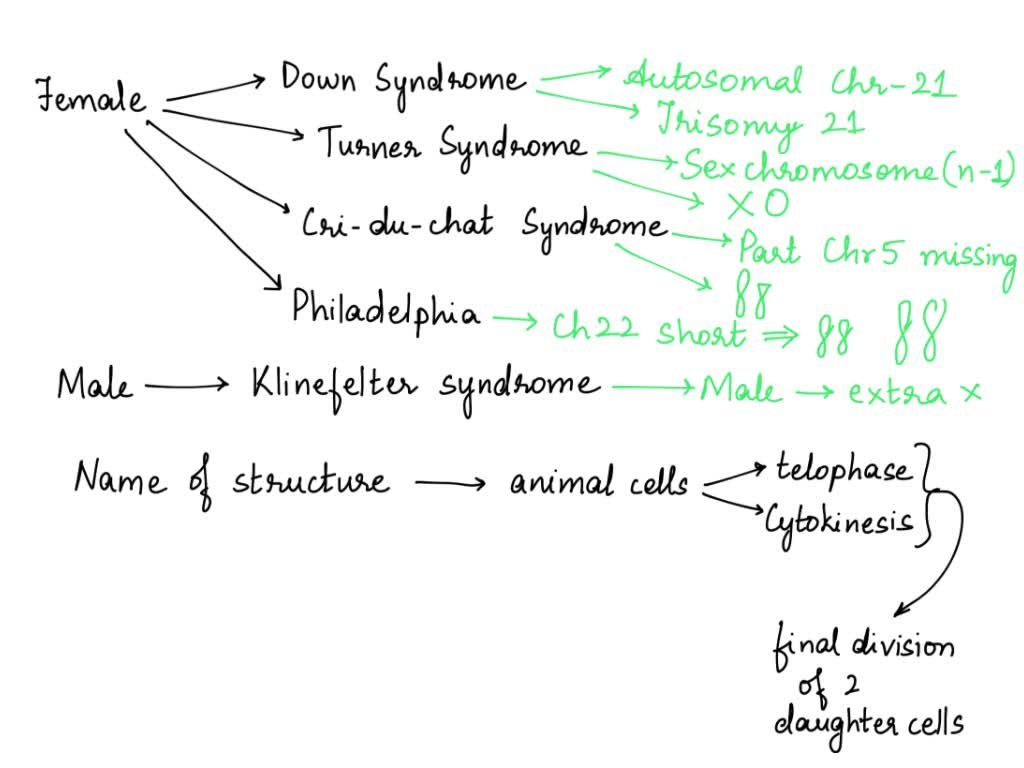 Female → Down Syndrome → Autosomal Chr-21
→ Trisomy 21
→ Turner Syndrome → Sex chromosome (n-1)
→ XO
→ Cri-du-chat Syndrome → Part Chr 5 missing
→ Philadelphia → Ch22 short ⇒
Male → Klinefelter syndrome → Male → extra x
Name of structure → animal cells → telophase
→ Cytokinesis
final division
of 2
daughter cells